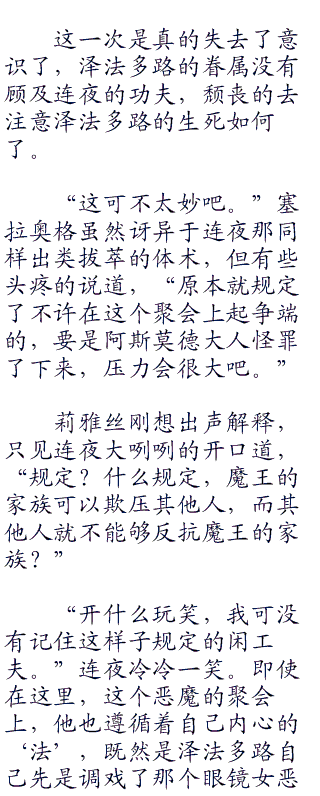 这一次是真的失去了意
识了，泽法多路的眷属没有
顾及连夜的功夫，颓丧的去
注意泽法多路的生死如何
了。
“这可不太妙吧。”塞
拉奥格虽然讶异于连夜那同
样出类拔萃的体术，但有些
头疼的说道，“原本就规定
了不许在这个聚会上起争端
的，要是阿斯莫德大人怪罪
了下来，压力会很大吧。”
莉雅丝刚想出声解释，
只见连夜大咧咧的开口道，
“规定？什么规定，魔王的
家族可以欺压其他人，而其
他人就不能够反抗魔王的家
族？”
“开什么玩笑，我可没
有记住这样子规定的闲工
夫。”连夜冷冷一笑。即使
在这里，这个恶魔的聚会
上，他也遵循着自己内心的
‘法’，既然是泽法多路自
己先是调戏了那个眼镜女恶